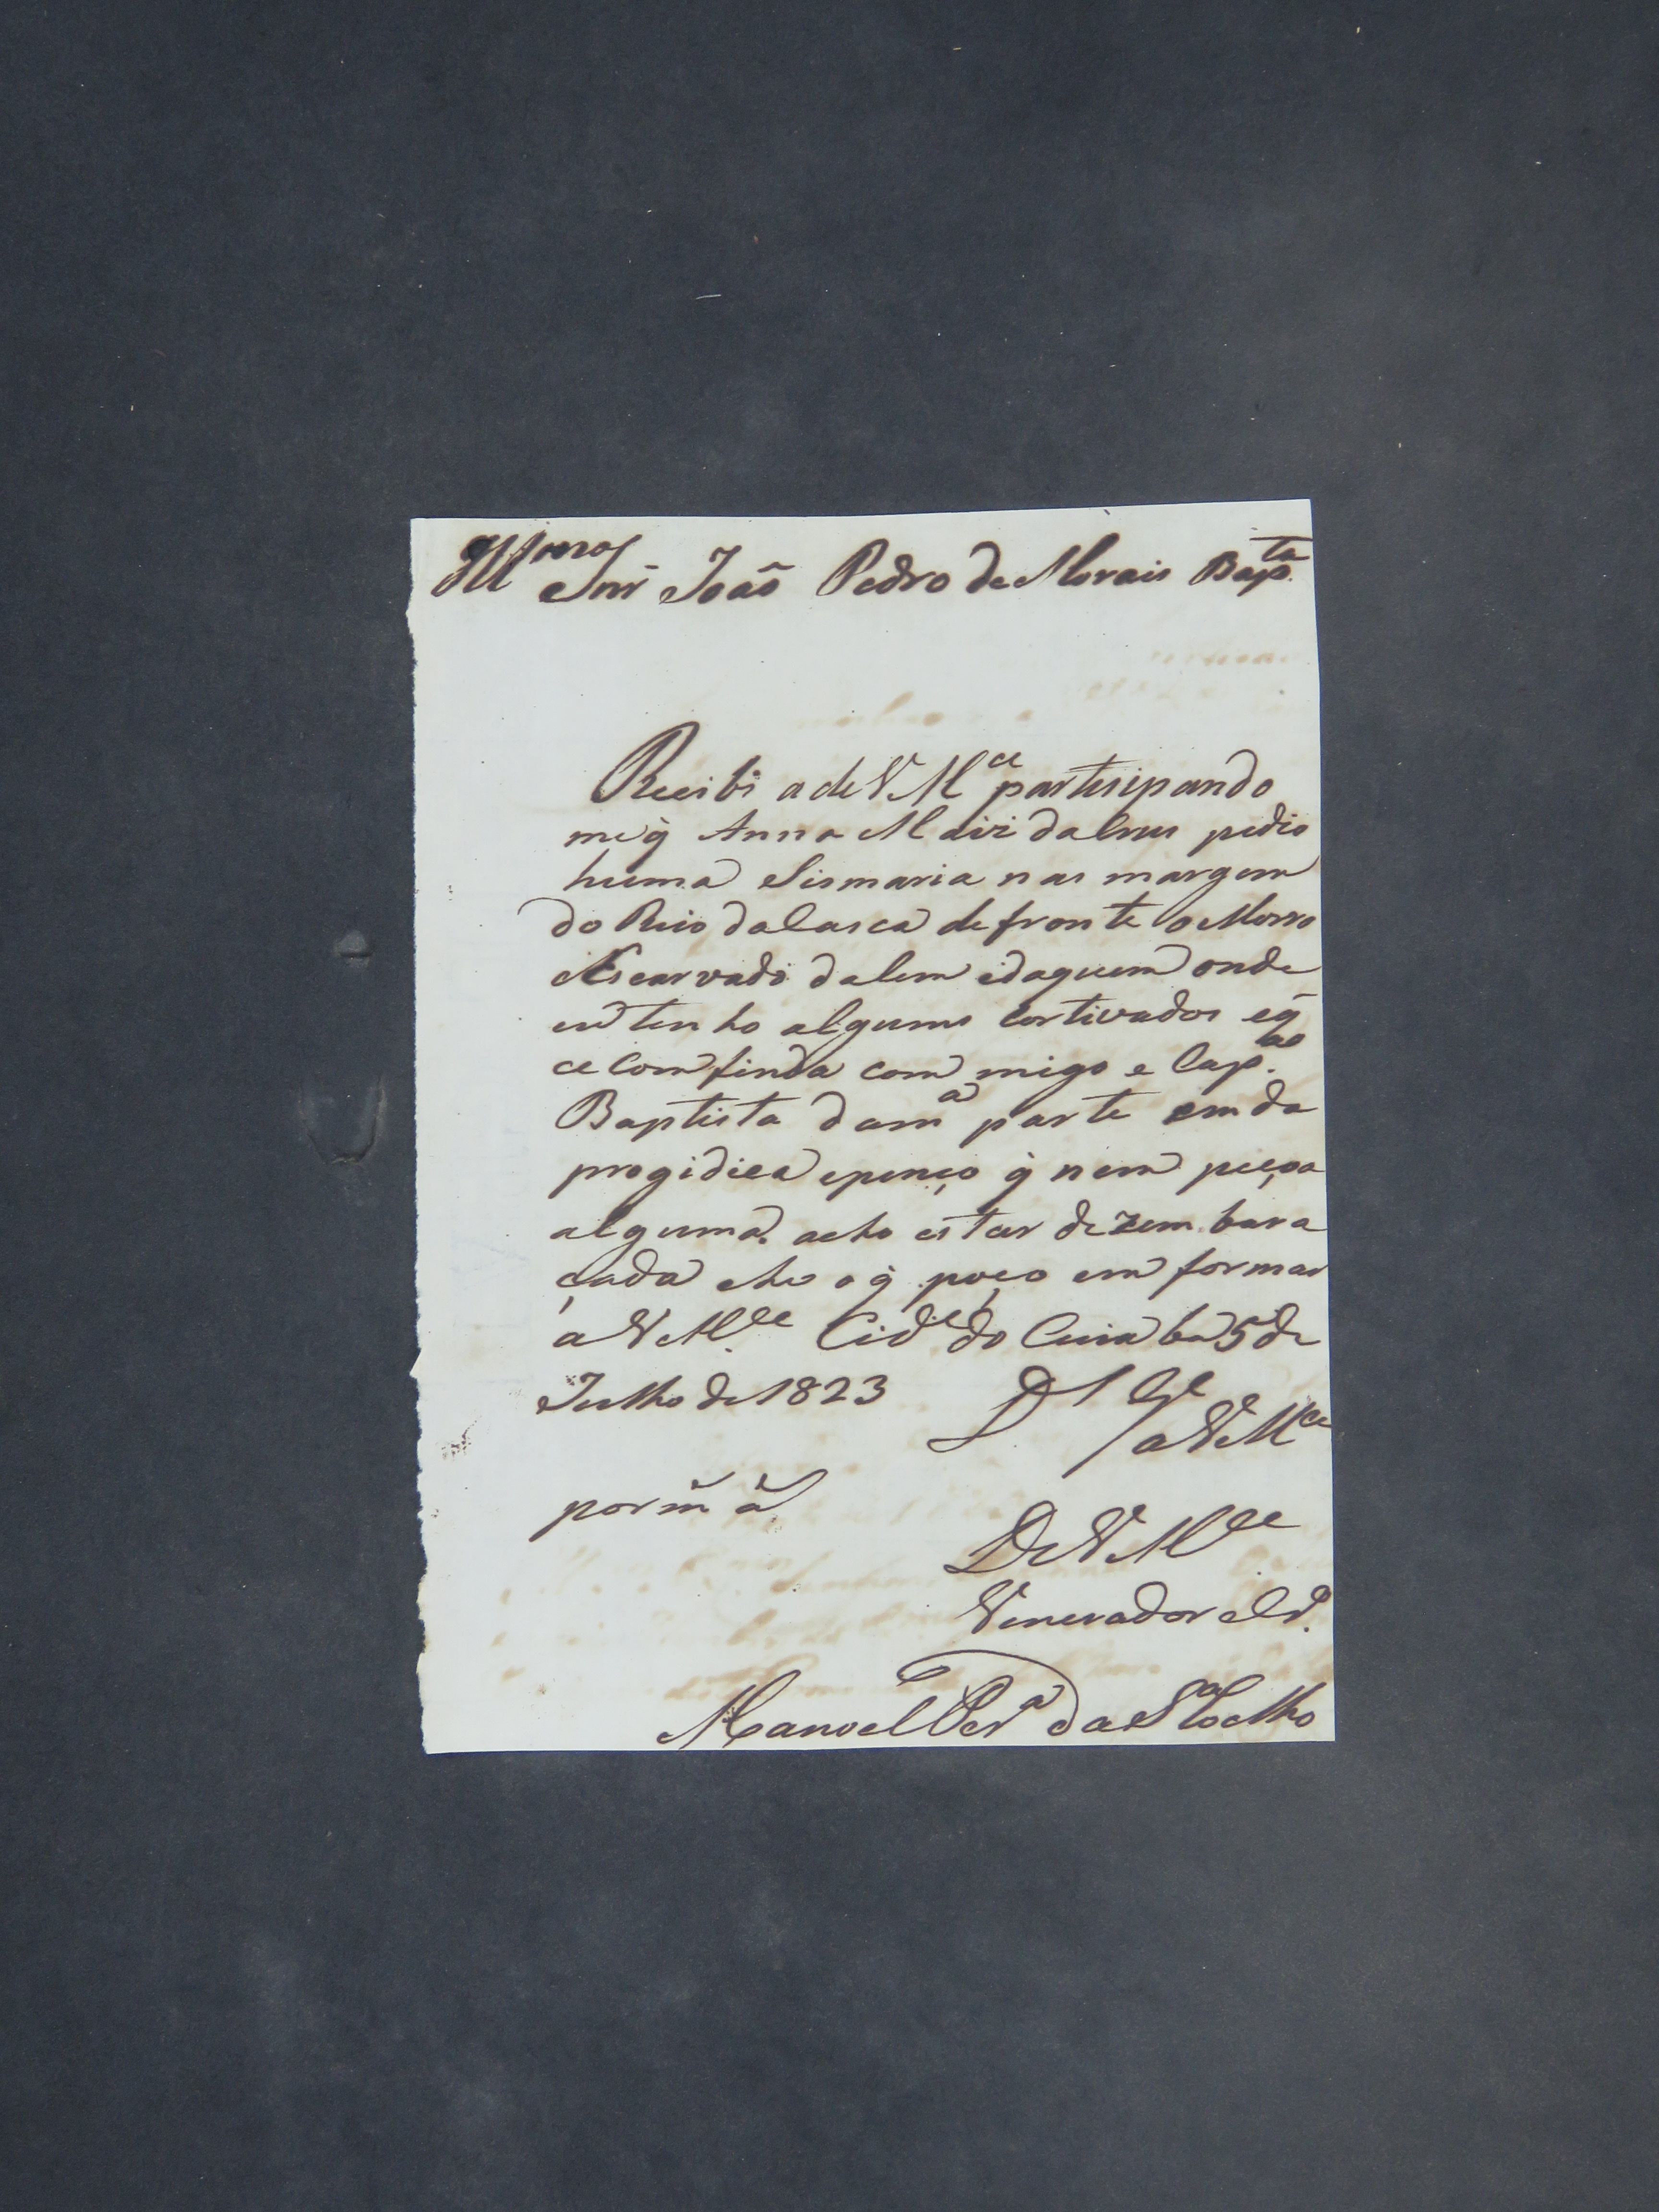 Illmo Snr João Pedro de Morais Bapta
Recibi a de V Mce partisipando
me q̃ Anna Maria da Lus pedio
huma Sismaria nas margem
do Rio da Casca defronte o Morro
Escarvado dalem e daquem onde
eu tenho algums cortivados eq̃
ce Comfinda com migo e Capam
Baptista dama parte em da
progidica epenço q̃ nem peçoa
alguma. acho estar dezembara
çada eho o q̃ poço em formar
a V Mce Cide do Cuiaba 5 de
Julho de 1823 Ds Ge
a V Mce
por m̃ ã
De V Mce
Venerador e Cro
Manoel Pera da Sa Coelho